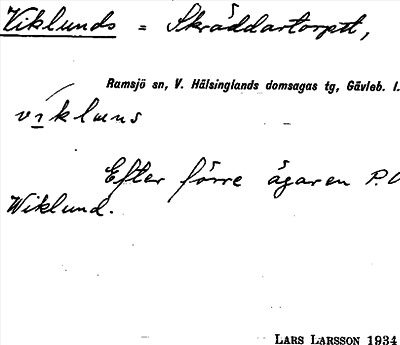 Viklunds = Skräddartorpet,
Ramsjö sn, V. Hälsinglands domsagas tg, Gävleb. l.
viklɯns
Efter förre ägaren P.
Wiklund.
LARS LARSSON 1934